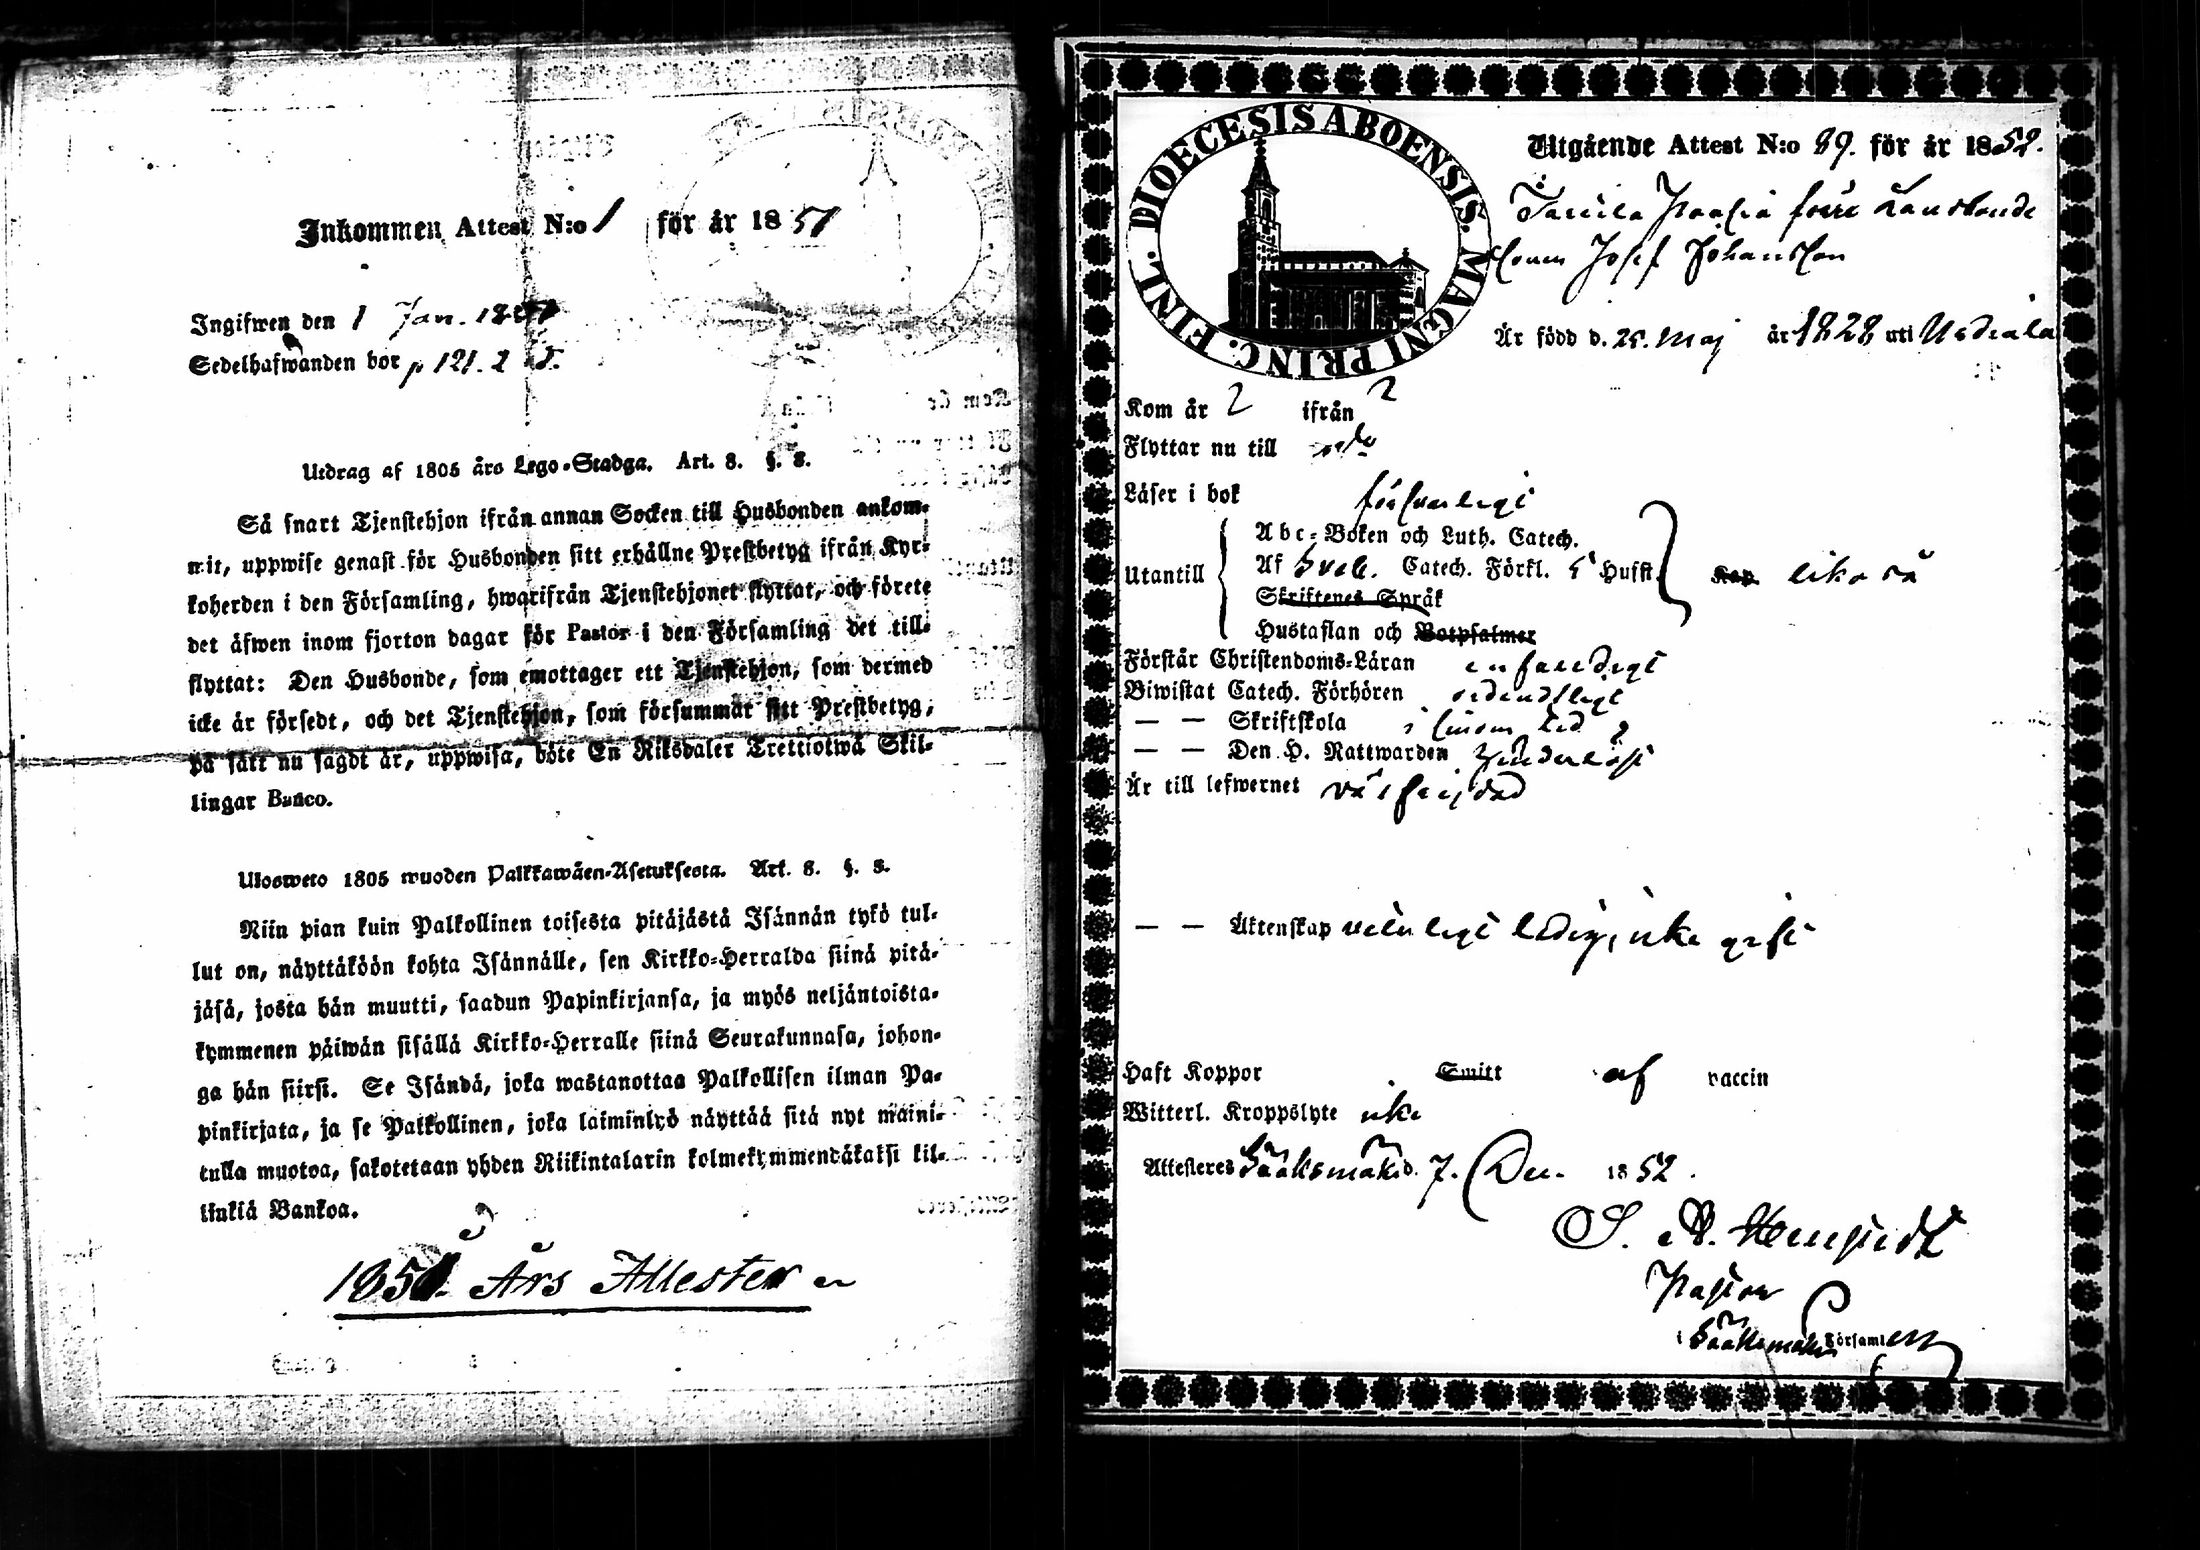 Inkommen Attest N:o 1 för år 1851
Ingifwen den 1 Jan. 1851
Sedelhafwanden bor p 121.2
Utdrag af 1805 års Lego-Stadga. Art. 8. §. 3.
Så snart Tjenstehjon ifrån annan Socken till Husbonden ankom-
mit, uppwise genast för Husbonden sitt erhållne Prestbetyg ifrån Kyr-
koherden i den Församling, hwarifrån Tjenstehjonet flyttat, och förete
det äfwen inom fjorton dagar för Pastor i den Församling det till-
flyttat: Den Husbonde, som emottager ett Tjenstehjon, som dermed
icke är försedt, och det Tjenstehjon, som försummar sitt Prestbetyg,
på sätt nu sagdt är, uppwisa, böte En Riksdaler Trettiotwå Skil-
lingar Banco.
Ulosweto 1805 wuoden Palkkawäen-Asetuksesta. Art. 8. §. 3.
Niin pian kuin Palkollinen toisesta pitäjästä Isännän tykö tul-
lut on, näyttäköön kohta Isännälle, sen Kirkko-Herralda siinä pitä-
jäsä, josta hän muutti, saadun Papinkirjansa, ja myös neljäntoista-
kymmenen päiwän sisällä Kirkko-Herralle siinä Seurakunnasa, johon-
ga hän siirsi. Se Isändä, joka wastanottaa Palkollisen ilman Pa-
pinkirjata, ja se Palkollinen, joka laiminlyö näyttää sitä nyt maini-
tulla muotoa, sakotetaan yhden Riikintalarin kolmekymmendäkaksi kil-
linkiä Bankoa.
1851. Års Attester
FINL. DIOECESIS ABOENSIS. MAGNI PRINC.
Utgående Attest N:o 89. för år 1852.
Josef Johansson
Är född d. 25. Maj år 1828 uti Urdiala
Kom år ? ifrån ?
Flyttar nu till
Läser i bok försvarligt
Abc-Boken och Luth. Catech.
Utantill Af Sveb. Catech. Förkl. 5 Hufst. Kap. lika så
Skriftenes Språk
Hustaflan och Botpsalmer
Förstår Christendoms-Läran enfaldigt
Biwistat Catech. Förhören ordentligt
— — Skriftskola i sinom tid
— — Den H. Nattwarden
Är till lefwernet väl frejdad
— — Äktenskap veterligt ledig, icke gift
Haft Koppor Smitt af vaccin
Witterl. Kroppslyte icke
Attesteres Sääksmäki d. 7. Dec. 1852.
Pastor
i Sääksmäki Församl